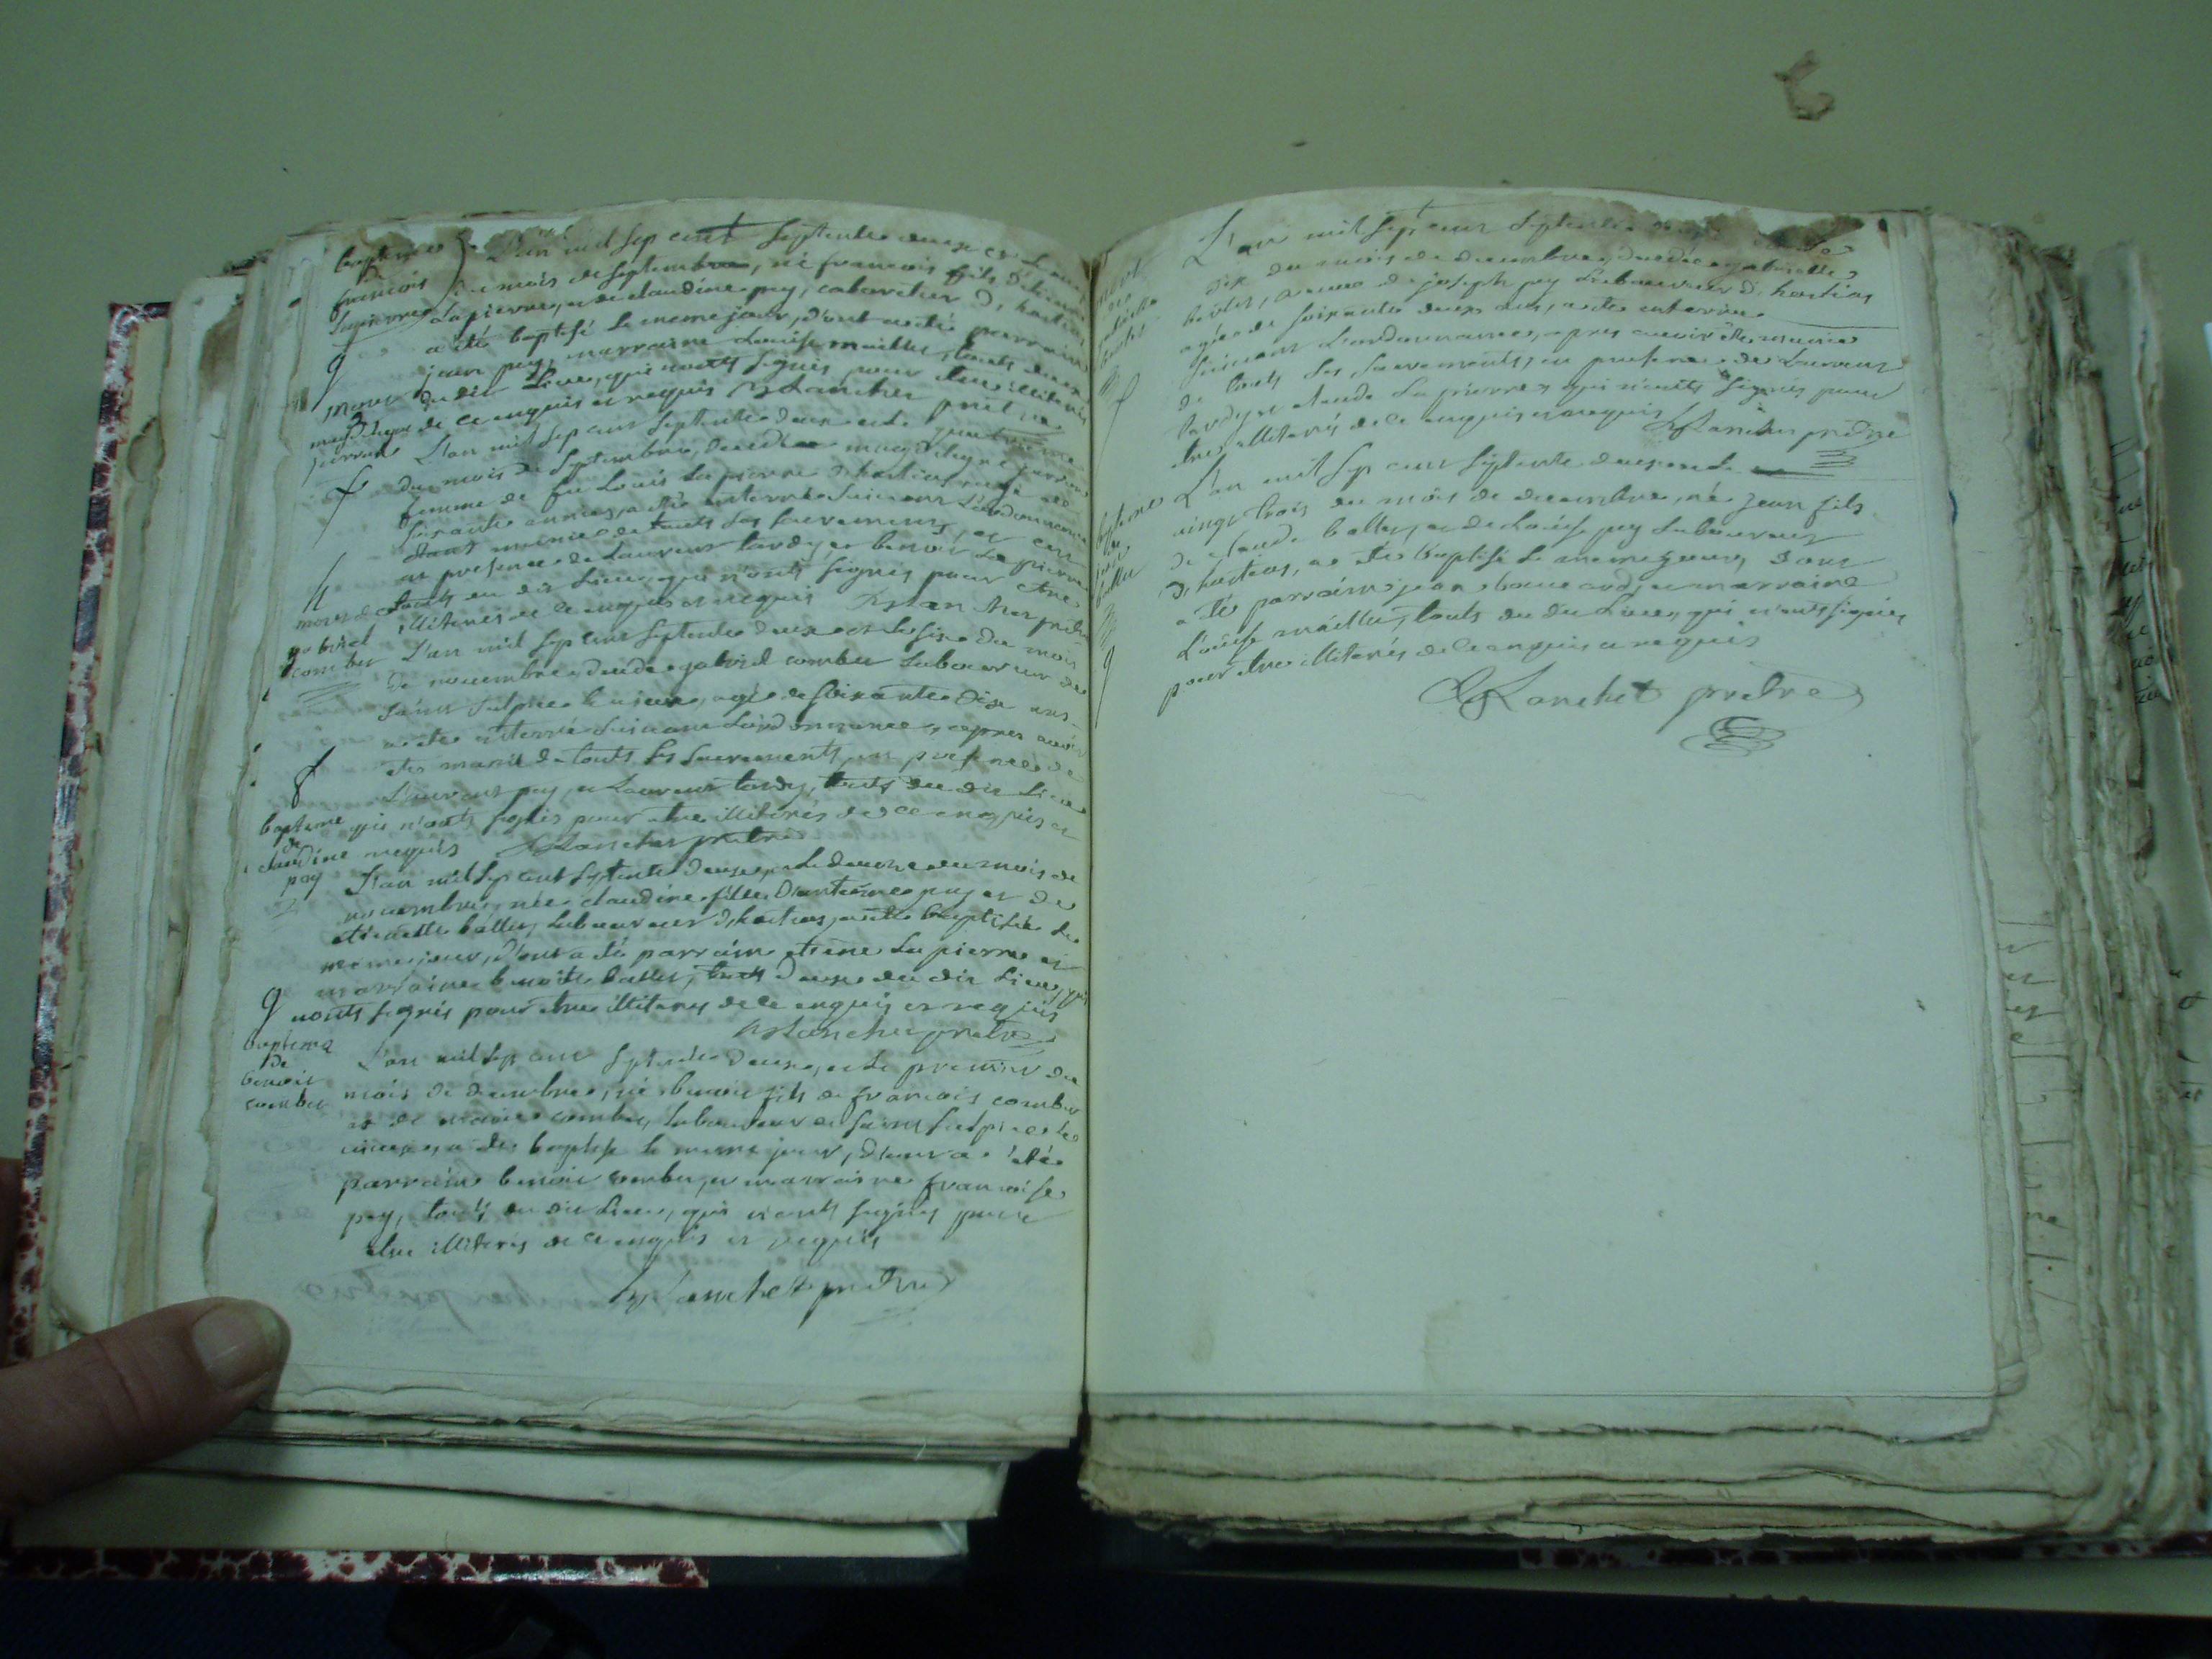 bapteme
de
francois
Lapierre
L'an mil sep cent septente deuse et le
du mois de septembre, né francois fils d'etienne
Lapierre, et de claudine pey, cabaretier d'hostias
a été baptisé le meme jour, d'ont a été parrain
jean pey, marraine Louise maillet, touts deux
du dit Lieu, qui n'onts signés pour etre illiterés
de ce enquis et requis Blanchet pretre
L'an mil sep cent septente deuse et le quatrieme
du mois de septembre, decedée
femme de feu Louis Lapierre d'hostias agée de
soisante années, a été enterrée suivant L'ordonnance
étant munie de touts les sacrements, et ce
en presence de Laurent tardy et benoit Lapierre
touts du dit Lieu, qui n'onts signés pour etre
illiterés de ce enquis et requis Blanchet pretre
mort de
gabriel
combet
L'an mil sep cent septente deuse et le sixe du mois
de novembre, decedé gabriel combet Laboureur de
saint sulpice le vieux, agé de soixante dise ans
a été enterré suivant L'ordonnance, apres avoir
été muni de touts les sacrements, en presence de
Laurent pey, et Laurent tardy, touts du dit Lieu
qui n'onts signés pour etre illiterés de ce enquis et
requis Blanchet pretre
bapteme
de
claudine
pey
L'an mil sep cent septente deuse, et le douze du mois de
novembre, née claudine fille d'antoine pey et de
etiennette ballet, Laboureur d'hostias, a été baptisée le
meme jour, d'ont a été parrain etiene Lapierre et
marraine benoite ballet, touts deuse du dit Lieu, qui
n'onts signés pour etre illiterés de ce enquis et requis
Blanchet pretre
bapteme
de
benoit
combet
L'an mil sep cent septente deuse, et le premier du
mois de decembre, né benoit fils de francois combet
et de marie combet, Laboureur de saint sulpice le
vieux, a été baptisé le meme jour, d'ont a été
parrain benoit combet, et marraine francoise
pey, touts du dit Lieu, qui n'onts signés pour
etre illiterés de ce enquis et requis
Blanchet pretre
L'an mil sept cent septente
dix du mois de decembre, decedée
ballet, femme de joseph pey Laboureur d'hostias
agée de soixante deuse ans, a été enterrée
suivant L'ordonnance, apres avoir été munie
de touts les sacrements, en presence de Laurent
tardy et claude Lapierre, qui n'onts signés pour
etre illiterés de ce enquis et requis Blanchet pretre
bapteme
de
jean
ballet
L'an mil sep cent septente deuse et le
vingt trois du mois de decembre, né jean fils
de claude ballet, et de Louise pey Laboureur
d'hostias, a été baptisé le meme jour, d'ont
a été parrain jean et marraine
Louise maillet, touts du dit Lieu, qui n'onts signés
pour etre illiterés de ce enquis et requis
Blanchet pretre